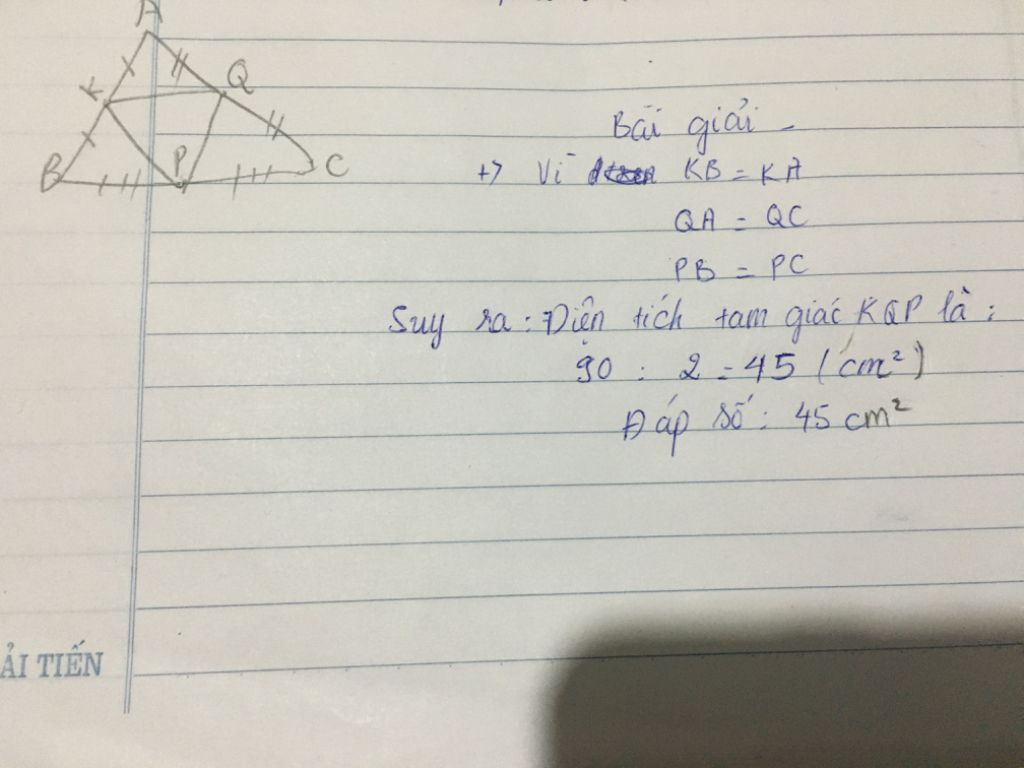 A
K
Q
B
P
C
Bài giải -
+> Vì KB = KA
QA = QC
PB = PC
Suy ra : Diện tích tam giác KQP là :
90 : 2 = 45 (cm²)
Đáp số : 45 cm²
ẢI TIẾN